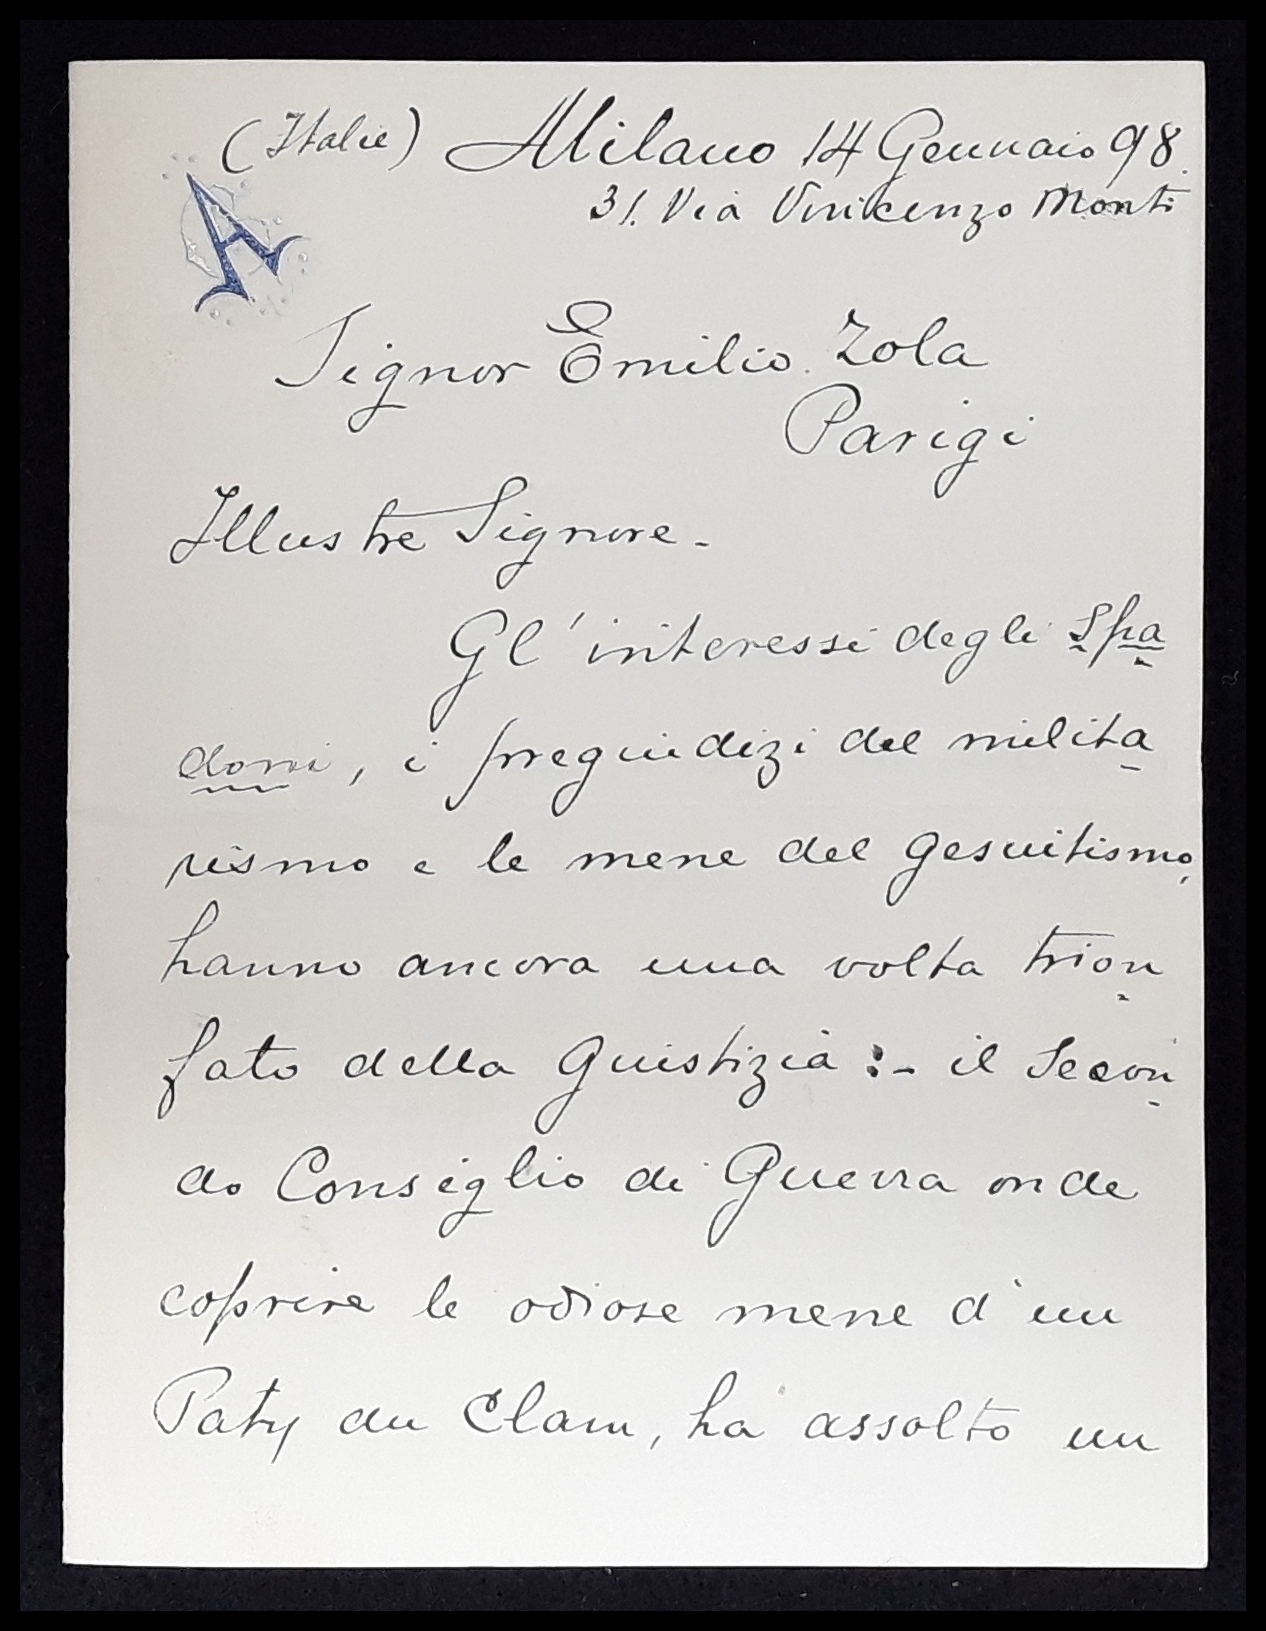 (Italie) Milano 14 Gennaio 98.
31. Via Vincenzo Monti
A
Signor Emilio Zola
Parigi
Illustre Signore.-
Gl'interessi degli Spa
doni, i pregiudizi del milita
rismo e le mene del gesuitismo,
hanno ancora una volta trion
fato della Giustizia:- il Secon
do Consiglio di Guerra onde
coprire le odiose mene d'un
Paty du Clam, ha assolto un